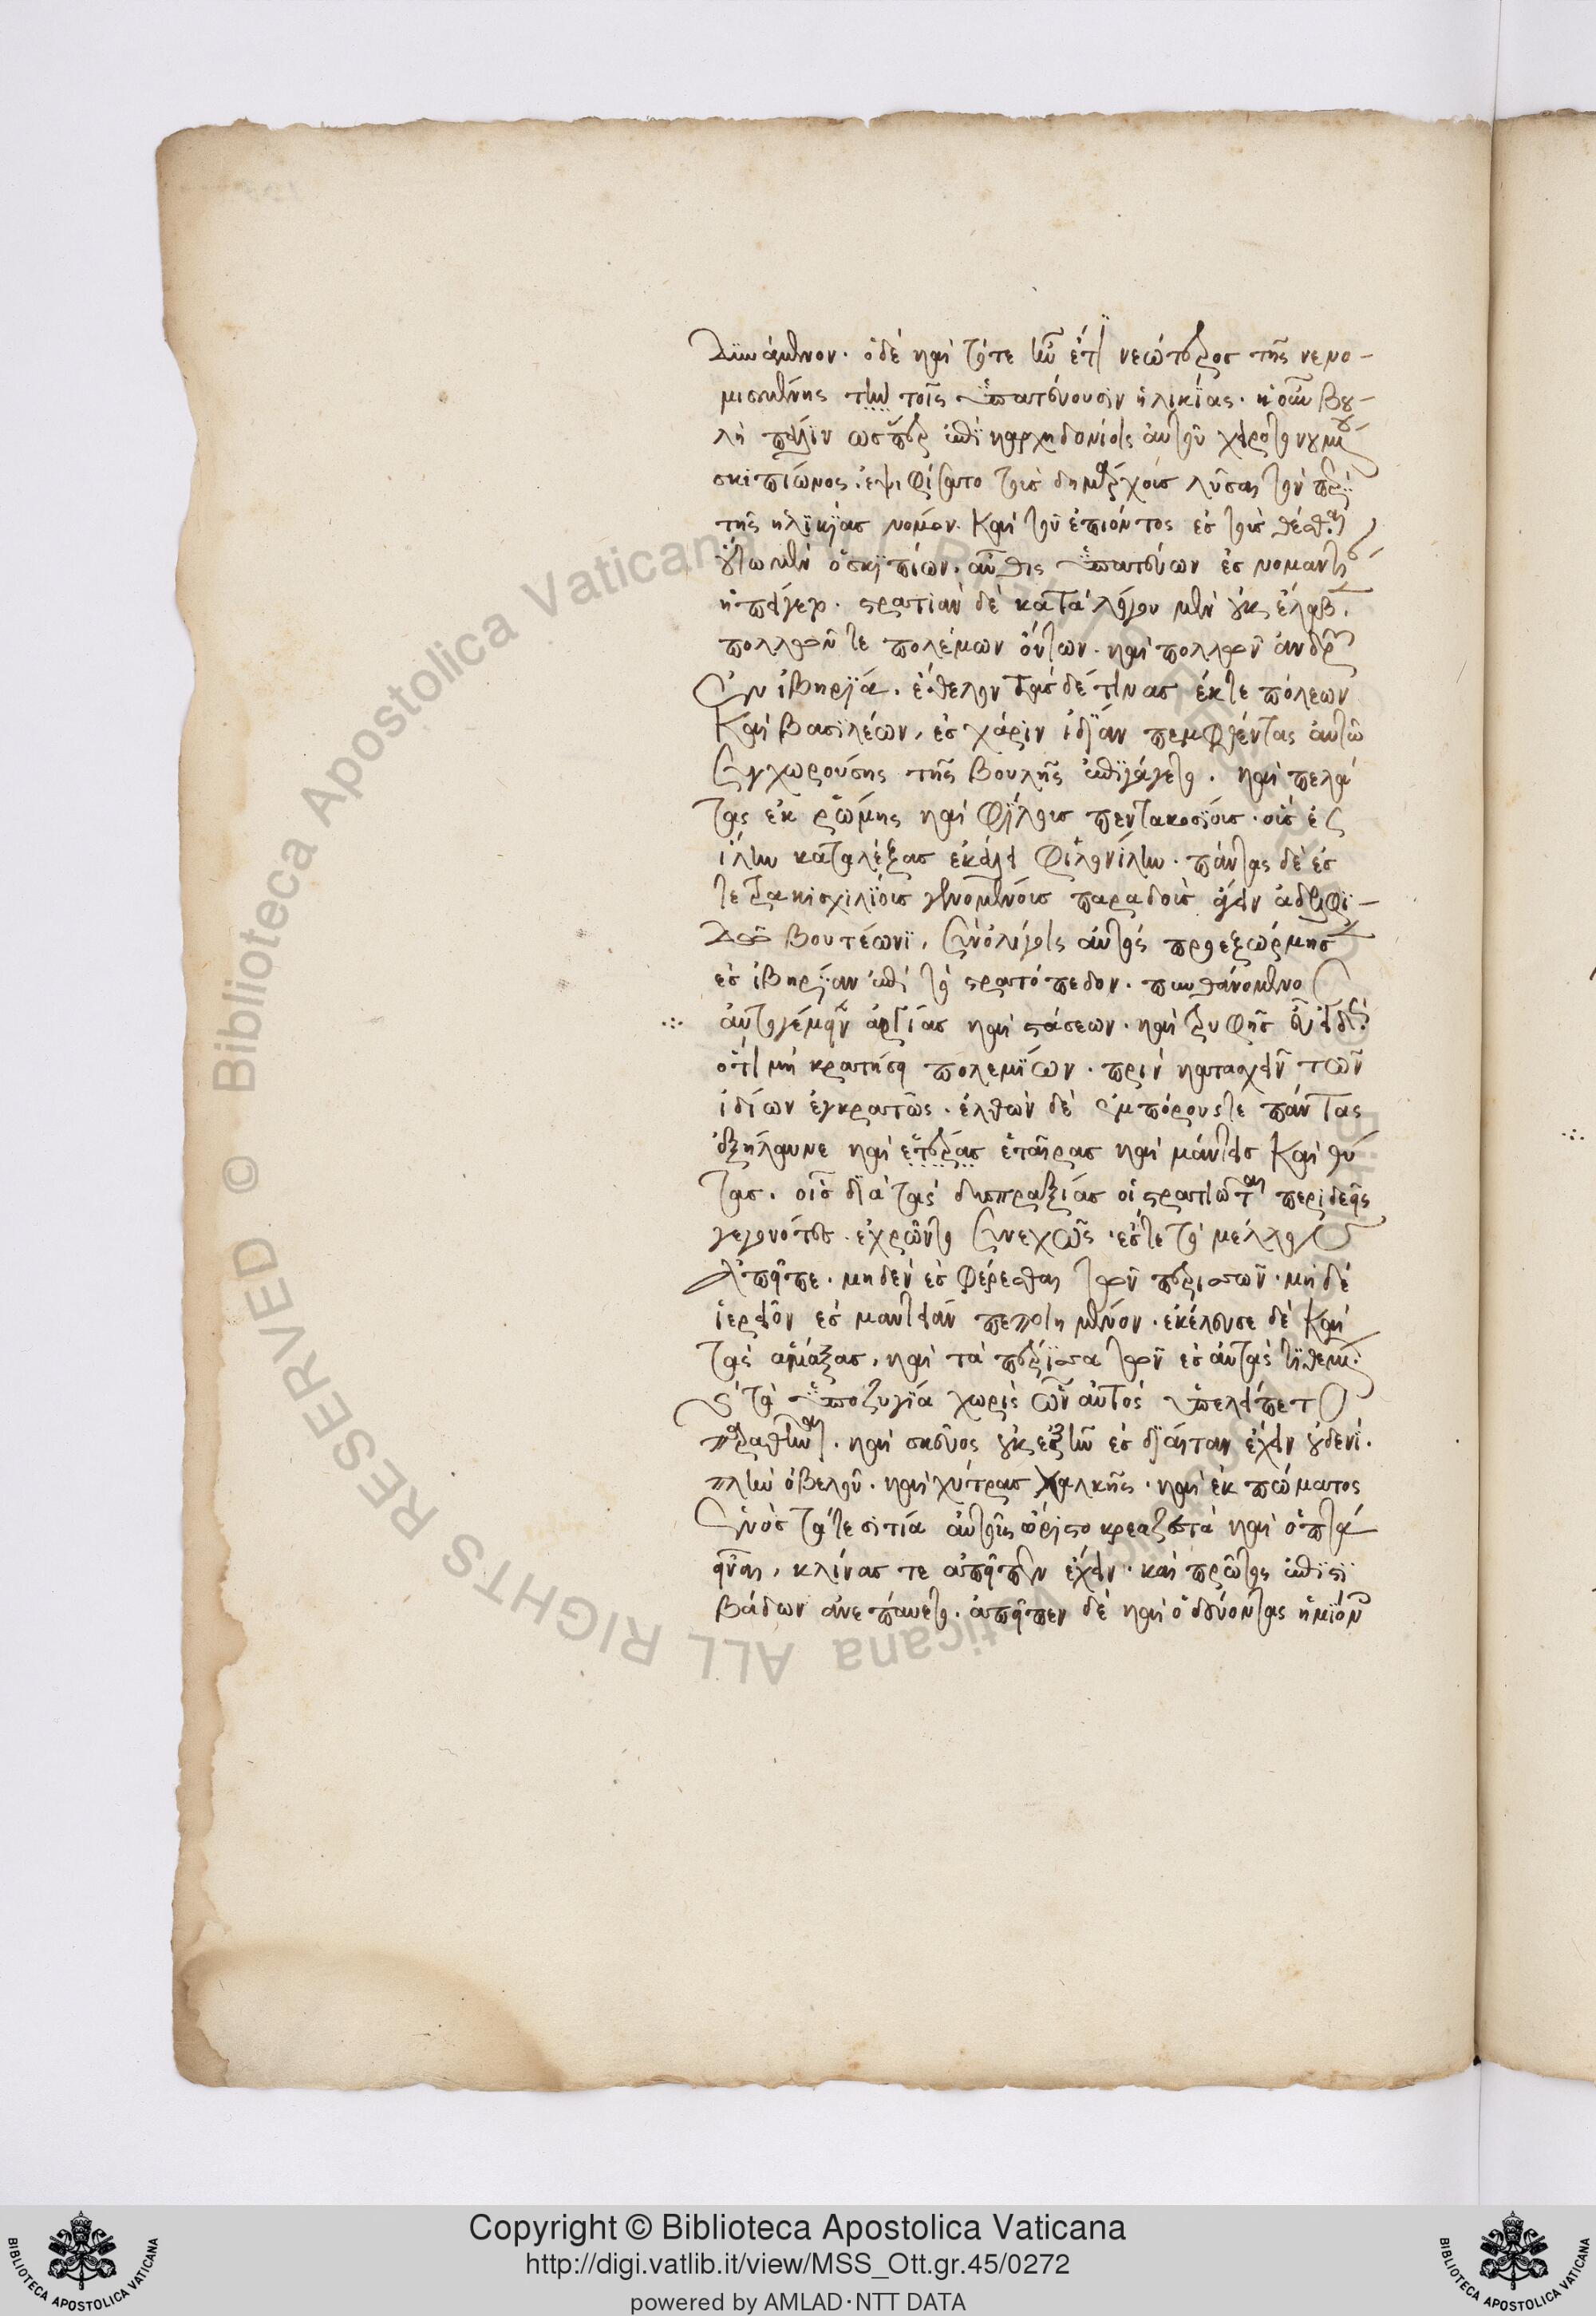 δυνάμενον. ὁ δὲ καὶ τότε ἦν ἔτι νεώτερος τῆς νενο-
μισμένης τὴν τοῖς ὑπατεύουσιν ἡλικίας. ἡ οὖν βου-
λὴ πάλιν ὥσπερ ἐπὶ καρχηδονίοις αὐτοῦ χειροτονουμένου
σκιπίωνος. ἐψηφίσατο τοὺς δημάρχους λῦσαι τὸν περὶ
τῆς ἡλικίας νόμον. καὶ τοῦ ἐπιόντος ἔτους θέσθαι
οὕτω μὲν ὁ σκιπίων. αὖθις ὑπατεύων ἐς νομαντίαν
ἠπείγετο. στρατιὰν δὲ κατάλογου μὲν οὐκ ἔλαβε.
πολλῶν τε πολέμων ὄντων. καὶ πολλῶν ἀνδρῶν
ἐν ἰβηρίᾳ. ἐθελοντὰς δέ τινας ἔκ τε πόλεων
καὶ βασιλέων, ἐς χάριν ἰδίαν πεμφθέντας αὐτῷ
συγχωρούσης τῆς βουλῆς ἐπηγάγετο. καὶ πελά
τας ἐκ ῥώμης καὶ φίλους πεντακοσίους. οὓς ἐς
ἴλην καταλέξας ἐκάλει φίλων ἴλην. πάντας δὲ ἐς
τετρακισχιλίους γενομένους παραδοὺς ἄγειν ἀδελφι-
δῷ βουτέωνι, σὺν ὀλίγοις αὐτὸς προεξώρμησεν
ἐς ἰβηρίαν ἐπὶ τὸ στρατόπεδον. πυνθανόμενος
αὐτὸ γέμειν ἀργίας καὶ στάσεων. καὶ τρυφῆς εὖ εἰδὼς
ὅτι μὴ κρατήσει πολεμίων. πρὶν κατασχεῖν τῶν
ἰδίων ἐγκρατῶς. ἐλθὼν δὲ ἐμπόρους τε πάντας
ἐξήλαυνε καὶ ἑτέρας ἑταίρας καὶ μάντεις καὶ θύ
τας. οἷς διὰ τὰς δυσπραξίας οἱ στρατιῶται περιδεεῖς
γεγονότες. ἐχρῶντο συνεχῶς. ἔς τε τὸ μέλλον
ἀπεῖπε. μηδὲν ἐσφέρεσθαι τῶν περισσῶν. μηδὲ
ἱερεῖον ἐς μαντείαν πεποιημένον. ἐκέλευσε δὲ καὶ
τὰς ἁμάξας, καὶ τὰ περισσὰ τῶν ἐς αὐτὰς τιθεμένων
καὶ τὰ ὑποζύγια χωρὶς ὧν αὐτὸς ὑπελείπετο
πραθῆναι. καὶ σκεῦος οὐκ ἐξῆν ἐς δίαιταν ἔχειν οὐδενί.
πλὴν ὀβελοῦ. καὶ χύτρας χαλκῆς. καὶ ἐκπώματος
ἑνὸς τά τε σιτία αὐτοῖς ὥριστο κρέα ζεστὰ καὶ ὀπτὰ
εἶναι, κλίνας τε ἀπεῖπεν ἔχειν. καὶ πρῶτος ἐπὶ στι
βάδων ἀνεπαύετο. ἀπεῖπεν δὲ καὶ ὁδεύοντας ἡμιόνοις
Copyright © Biblioteca Apostolica Vaticana
http://digi.vatlib.it/view/MSS_Ott.gr.45/0272
powered by AMLAD·NTT DATA